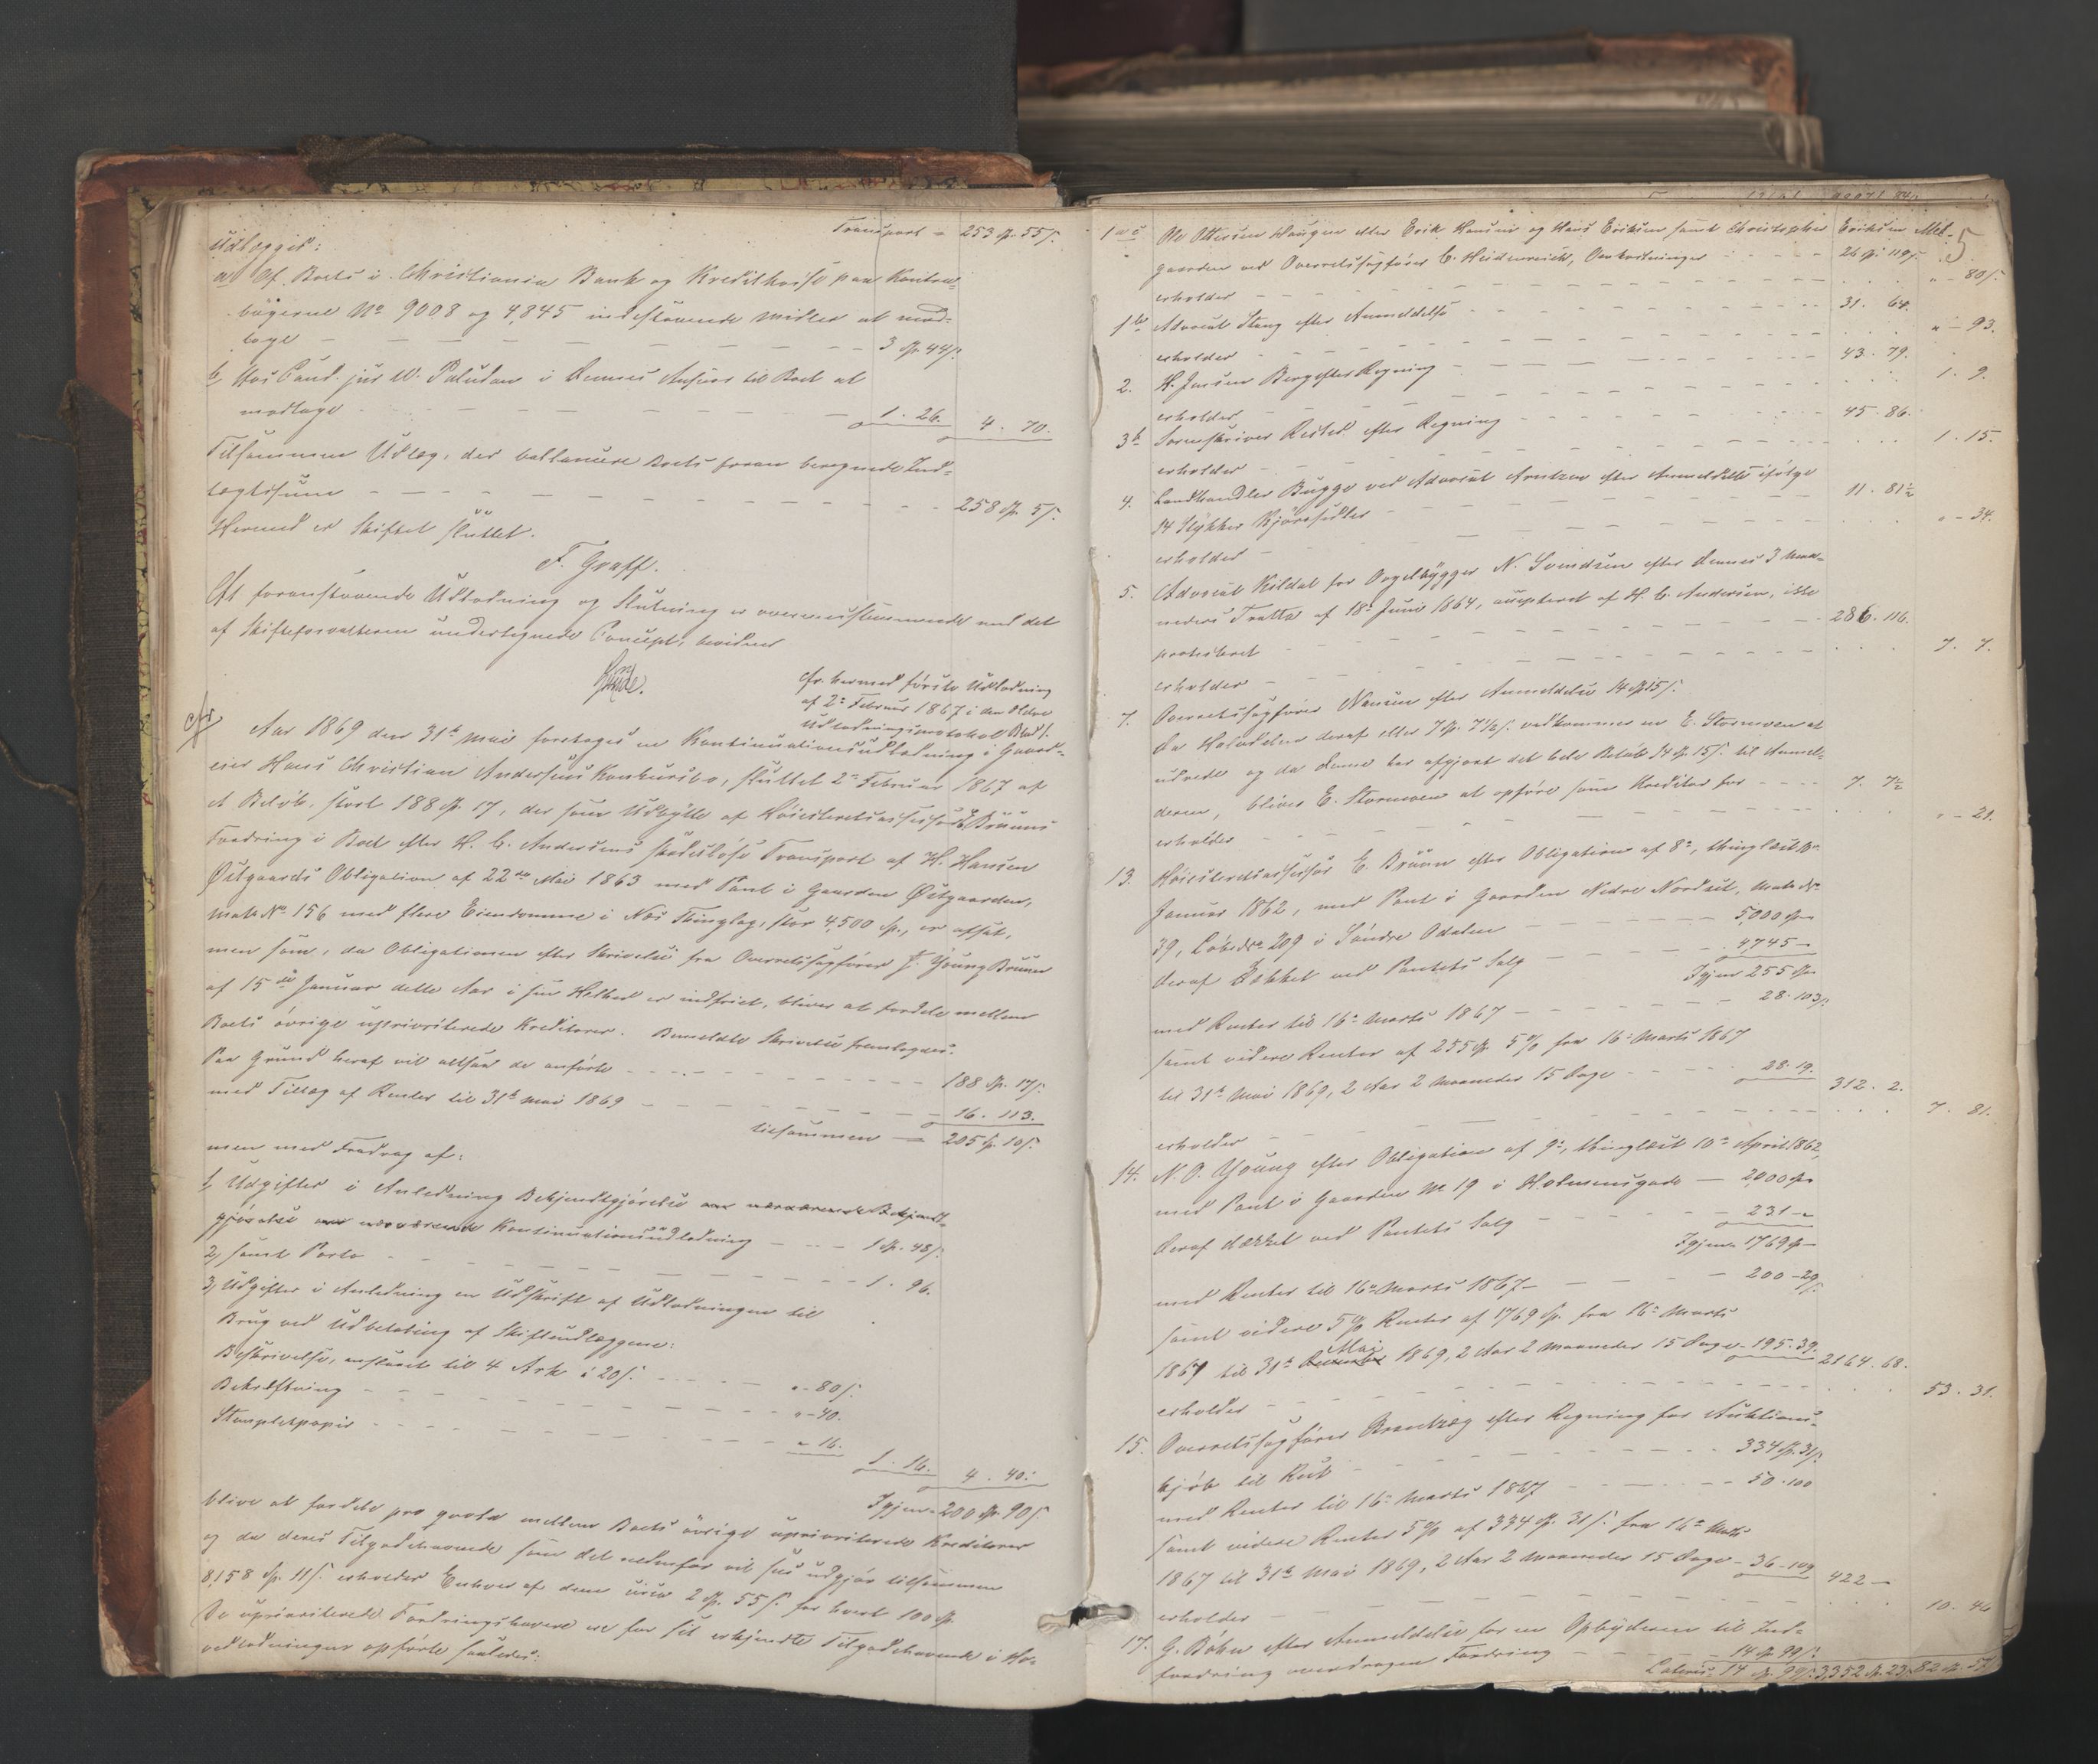 Transport = 253 Sp. 55 s.
Udlægges:
a) Af Boets i Christiania Bank og Kreditkasse paa Kontra-
bøgerne No 9008 og 4,845 indestaaende Midler at mod-
tage — 3 Sp. 44 s.
b) Hos Cand. jur. W. Paludan i Dennes Ansvar til Boet at
modtage — 1. 26. 4. 70.
Tilsammen Udlæg, der ballancere Boets foran beregnede Ind-
tægtssum — 258 Sp. 5 s.
Hermed er Skiftet sluttet.
F. Graff.
At foranstaaende Udlodning og Slutning er overensstemmende med det
af Skifteforvalteren undertegnede Concept, bevidner
cfr. hermed første Udlodning
af 2den Februar 1867 i den ældre
Udlodningsprotokol
cfr
Aar 1869 den 31te Mai foretages en Kontinuationsudlodning i Gaard-
eier Hans Christian Andersens Konkursbo, sluttet 2den Februar 1867 af
et Beløb, stort 188 Sp. 17, der som Udbytte af Høiesteretsassessor E. Bruuns
Fordring i Boet efter H. C. Andersens skadesløse Transport af H. Hansen
Østgaards Obligation af 22de Mai 1863 med Pant i Gaarden Østgaarden,
Matr. No 156 med flere Eiendomme i Næs Thinglag, stor 4,500 Sp., er afsat,
men som, da Obligationen efter Skrivelse fra Overretssagfører J. Young Bruun
af 15de Januar dette Aar i sin Helhed er indfriet, bliver at fordele mellem
Boets øvrige uprioriterede Kreditorer. Bemeldte Skrivelse fremlagdes.
Paa Grund heraf vil altsaa de anførte — 188 Sp. 17 s.
med Tillæg af Renter til 31te Mai 1869 — 16. 113.
tilsammen — 205 Sp. 10 s.
men med Fradrag af:
1) Udgifter i Anledning Bekjendtgjørelse om nærværende Bekjendt-
gjørelse om nærværende Kontinuationsudlodning — 1 Sp. 48 s.
2) samt Porto — 1. 96.
3) Udgifter i Anledning en Udskrift af Udlodningen til
Brug ved Udbetaling af Skifteudlæggene:
Beskrivelse, anslaaet til 4 Ark à 20 s. — " 80 s.
Bekræftning — " 40.
Stempletpapir — " 16.
1. 16. 4. 40.
Igjen = 200 Sp. 90 s.
blive at fordele pro qvota mellem Boets øvrige uprioriterede Kreditorer
og da deres Tilgodehavende som det nedenfor vil sees udgjør tilsammen
8,158 Sp. 11 s. erholder Enhver af dem circa 2 Sp. 55 s. for hvert 100 Sp.
De uprioriterede Fordringshavere ere for sit erkjendte Tilgodehavende i Ho-
vedlodningen opførte saaledes:
5
1 Ole Ottersen Haugen eller Erik Hansen og Hans Eriksen samt Christopher Eriksen
gaarden ved Overretssagfører C. Heidenreich, Omkostninger — 26 Sp. 119 s.
erholder — " 80 s.
1 Advocat Stang efter Anmeldelse — 31. 64.
erholder — " 93.
2. H. Jensen Berg efter Regning — 43. 79.
erholder — 1. 9.
3 Sorenskriver Rested efter Regning — 45. 86.
erholder — 1. 15.
4. Landhandler Bugge ved Advocat Arntzen efter Anmeldelse ifølge
14 Stykker Kjøresedler — 11. 81½
erholder — " 34.
5. Advocat Kildal for Orgelbygger N. Svendsen efter dennes 3 Maa-
neders Tratte af 18de Juni 1864, accepteret af H. C. Andersen, ikke
protesteret — 286. 116.
erholder — 7. 7.
7. Overretssagfører Nansen efter Anmeldelse 14 Sp. 15 s.
Da Halvdelen deraf eller 7 Sp. 7½ s. vedkommer en E. Stormoen at
udrede og da denne har afgjort det hele Beløb 14 Sp. 15 s. til Anmel-
deren, bliver E. Stormoen at opføre som Kreditor for — 7. 7½
erholder — " 21.
13. Høiesteretsassessor E. Bruun efter Obligation af 8de, thinglæst
Januar 1862, med Pant i Gaarden Nedre Nordset, Matr. No
39, Løbe No 209 i Søndre Odalen — 5,000 Sp.
deraf Dækket ved Pantets Salg — 4745 —
Igjen 255 Sp.
med Renter til 16de Marts 1867 — 28. 103 s.
samt videre Renter af 255 Sp. 5 % fra 16de Marts 1867
til 31te Mai 1869, 2 Aar 2 Maaneder 15 Dage — 28. 19. 312. 2.
erholder — 7. 81.
14. N. O. Young efter Obligation af 9de, thinglæst 10de April 1862,
med Pant i Gaarden No 19 i Holmensgade — 2,000 Sp.
deraf dækket ved Pantets Salg — 231 —
Igjen 1769 Sp.
med Renter til 16de Marts 1867 — 200 - 29 s.
samt videre 5 % Renter af 1769 Sp. fra 16de Marts
1867 til 31te December Mai 1869, 2 Aar 2 Maaneder 15 Dage — 195. 39. 2164. 68.
erholder — 53. 31.
15. Overretssagfører efter Regning for Auktions-
kjøb til Rest — 334 Sp. 31 s.
med Renter til 16de Marts 1867 — 50. 100
samt videre Renter 5 % af 334 Sp. 31 s. fra 16de Marts
1867 til 31te Mai 1869, 2 Aar 2 Maaneder 15 Dage — 36 - 109 422 —
erholder — 10. 46
17. G. Bøhn efter Anmeldelse for en Opbyderen til Ind-
fordring overdragen Fordring — 14 Sp. 99 s.
Lateris 14 Sp. 99 s. 3,352 Sp. 23. 82 Sp. 57